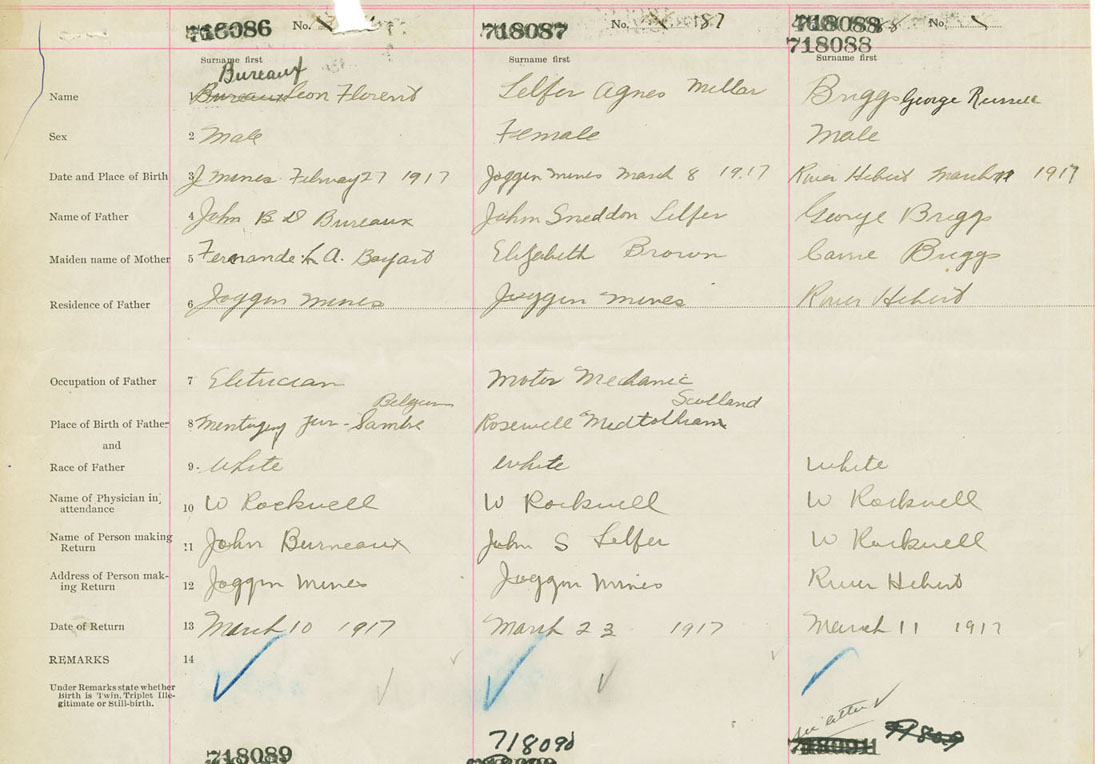 718086 No. 718087 No. 187 718088 88 No.
718088
Surname first Surname first Surname first
Bureaux
Name 1 Bureaux Leon Florent Selfer Agnes Mellar Briggs George Russell
Sex 2 Male Female Male
Date and Place of Birth 3 J Mines Febuary 27 1917 Joggin Mines March 8 1917 River Hebert March 1917
Name of Father 4 John B D Bureaux John Sneddon Selfer George Briggs
Maiden name of Mother 5 Fernande L. A. Bayart Elizabeth Brown Carrie Briggs
Residence of Father 6 Joggin Mines Joggin Mines River Hebert
Occupation of Father 7 Eletrician Motor Mechanic
Belgium Scotland
Place of Birth of Father 8 Sur-Sambre Rosewell
and
Race of Father 9. White White White
Name of Physician in attendance 10 W Rockwell W Rockwell W Rockwell
Name of Person making Return 11 John Burneaux John S Selfer W Rockwell
Address of Person mak-ing Return 12 Joggin Mines Joggin Mines River Hebert
Date of Return 13 March 10 1917 March 23 1917 March 11 1917
REMARKS 14
Under Remarks state whether
Birth is Twin, Triplet Ille-
gitimate or Still-birth.
see letter
718089 718090 71809